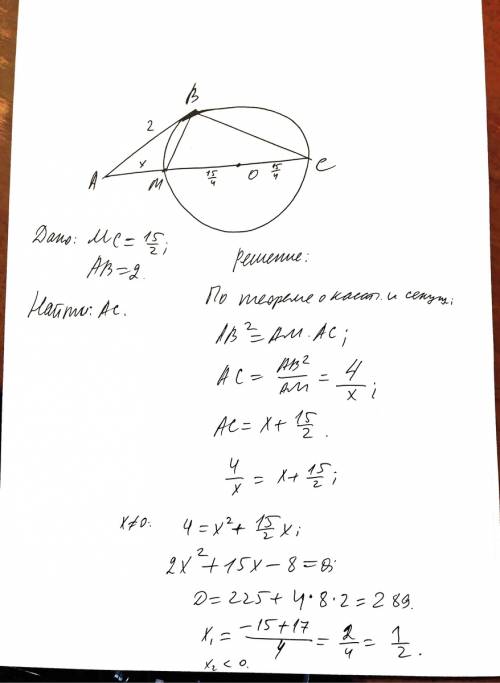 B
2
x
A
M
15/4
O
15/4
C
Дано: MC = 15/2;
AB = 2.
Найти: AC.
Решение:
По теореме о касат. и секущ.;
AB² = AM · AC;
AC = AB²/AM = 4/x;
AC = x + 15/2.
4/x = x + 15/2;
x ≠ 0: 4 = x² + 15/2 x;
2x² + 15x − 8 = 0;
D = 225 + 4 · 8 · 2 = 289.
x₁ = (−15 + 17)/4 = 2/4 = 1/2.
x₂ < 0.